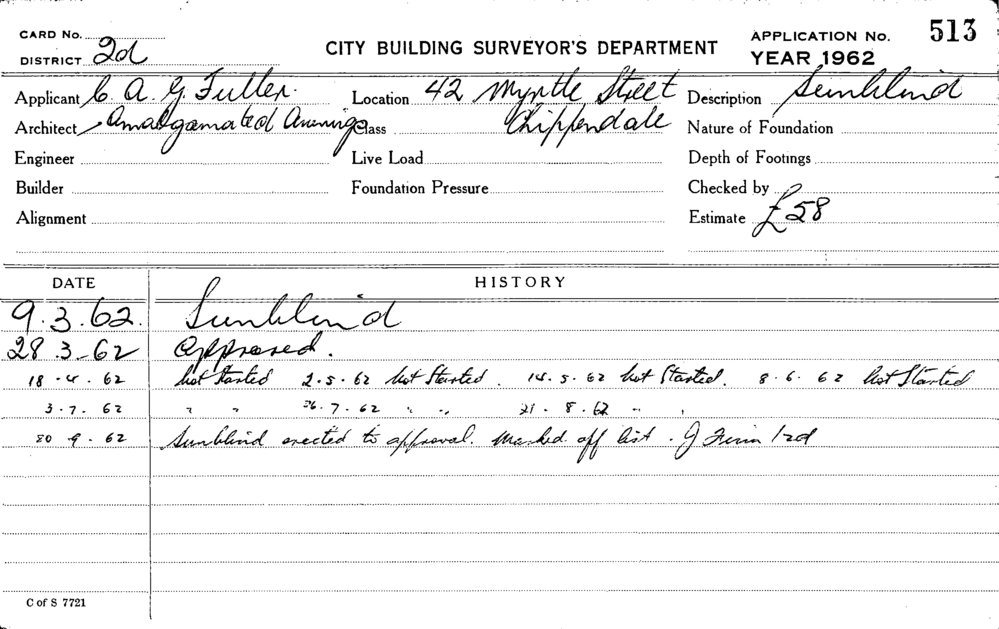 CARD No.
CITY BUILDING SURVEYOR'S DEPARTMENT
APPLICATION No. 513
DISTRICT 2d
YEAR 1962
Applicant C. A. G. Fuller. Location 42 Myrtle Street Description Sunblind
Architect Amalgamated Awnings Class Chippendale Nature of Foundation
Engineer Live Load Depth of Footings
Builder Foundation Pressure Checked by
Alignment Estimate £58
DATE HISTORY
9.3.62. Sunblind
28.3-62 Approved.
18.4.62 Not Started 2.5.62 Not Started. 14.5.62 Not Started. 8.6.62 Not Started
3.7.62 " " 26.7.62 " " 21.8.62 " "
20 9.62 Sunblind erected to approval. Marked off list. J
C of S 7721